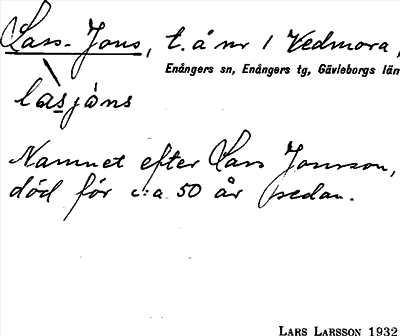 Lars-Jons, t. å nr 1 Vedmora,
Enångers sn, Enångers tg, Gävleborgs län
lasjòns
Namnet efter Lars Jonsson,
död för c:a 50 år sedan.
LARS LARSSON 1932